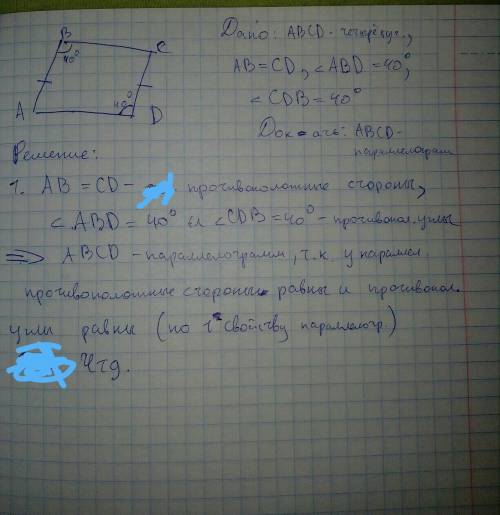 B
C
40°
A
40°
D
Дано: ABCD - четырёхуг.,
AB = CD, <ABD = 40°,
<CDB = 40°
Док-ать: ABCD -
параллелограм
Решение:
1. AB = CD - противоположные стороны,
<ABD = 40° и <CDB = 40° - противопол. углы
=> ABCD - параллелограмм, т.к. у паралел.
противоположные стороны равны и противопол.
углы равны (по 1 свойству параллелогр.)
Чтд.